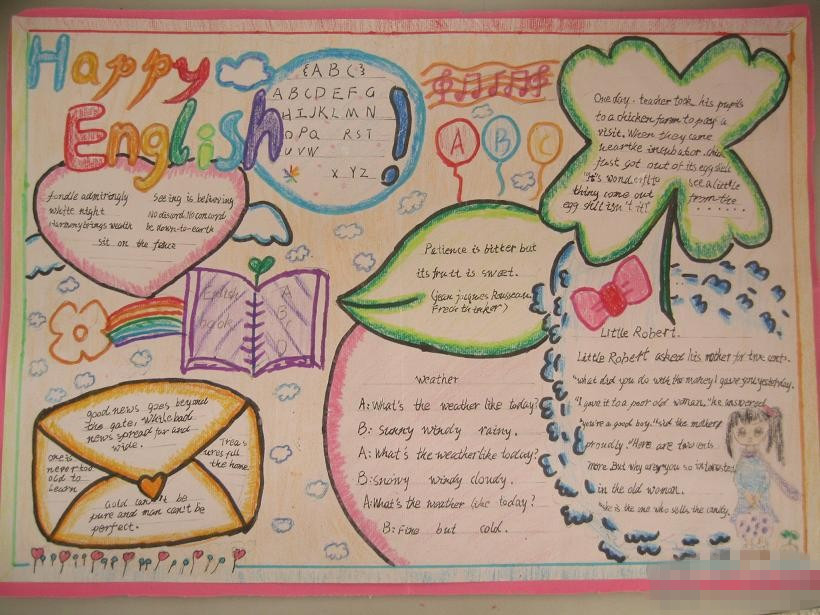 Happy
English!
{ABC}
ABCDEFG
HIJKLMN
OPQ RST
UVW
XYZ
A B C
One day. teacher took his pupils
to a chicken farm to pay a
visit. When they came
near the incubator.
just got out of its eggshell
see a little
thing come out from the
egg shell isn't it!
fondle admiringly
white night
Harmony brings wealth
Seeing is believing
No discord. No concord
be down-to-earth
sit on the fence
Patience is bitter but
its fruit is sweet.
(jean jacques Rousseau.
thinker)
English
book
A
B
C
D
good news goes beyond
the gate, while bad
news spread far and
wide.
one is
never too
old to
learn
Treas
ures fill
the home
Gold can't be
pure and man can't be
perfect.
Weather
A: What's the weather like today?
B: sunny windy rainy.
A: What's the weather like today?
B: snowy windy cloudy.
A: What's the weather like today?
B: Fine but cold.
Little Robert.
Little Robert asked his mother for two cents.
"what did you do with the money I gave you yesterday.
"I gave it to a poor old woman." he answered
"you're a good boy." said the mother
proudly. "Here are two cents
more. But why are you so interested
in the old woman.
"she is the one who sells the candy.